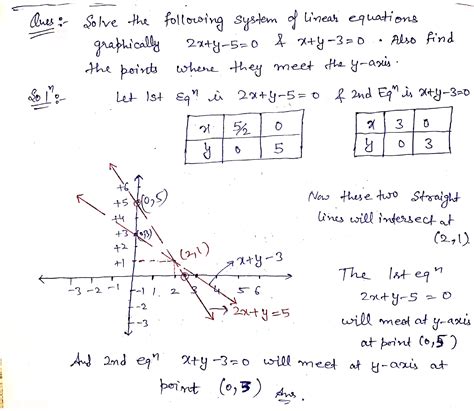 Ques:- Solve the following system of linear equations
graphically 2x+y-5=0 & x+y-3=0 . Also find
the points where they meet the y-axis.
Solⁿ:- Let 1st Eqⁿ is 2x+y-5=0 & 2nd Eqⁿ is x+y-3=0
x 5/2 0
y 0 5
x 3 0
y 0 3
+6
+5 (0,5)
+4
+3 (0,3)
+2
+1
(2,1)
x+y-3
-3 -2 -1 1 2 3 5 6
-1
-2
-3
2x+y=5
Now these two straight
lines will intersect at
(2,1)
The 1st eqⁿ
2x+y-5=0
will meet at y-axis
at point (0,5)
And 2nd eqⁿ x+y-3=0 will meet at y-axis at
point (0,3) Ans.